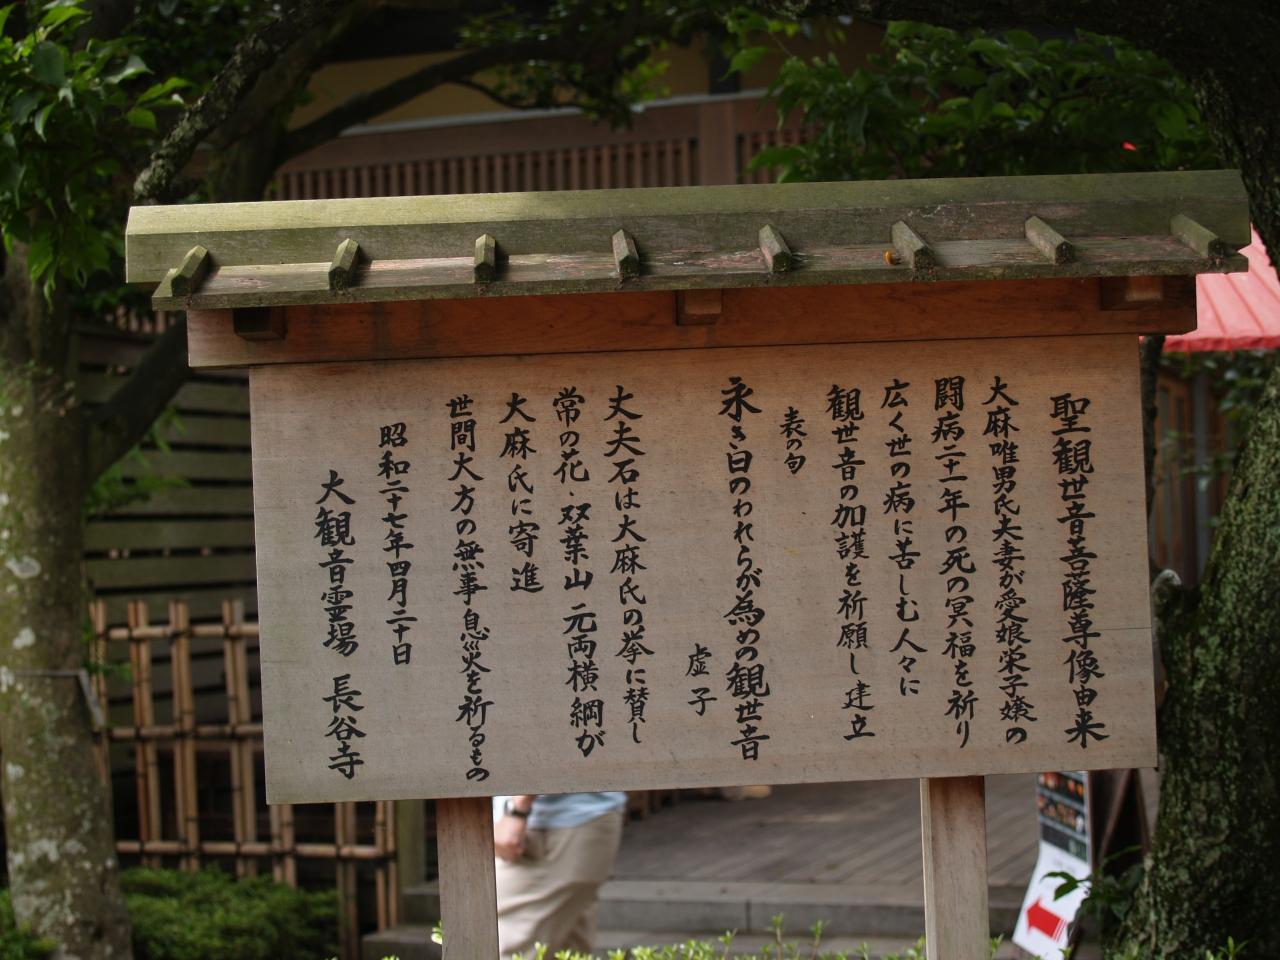 聖観世音菩薩尊像由来
大麻唯男氏夫妻が愛娘栄子嬢の
闘病二十一年の死の冥福を祈り
広く世の病に苦しむ人々に
観世音の加護を祈願し建立
表の句
永き日のわれらが為めの観世音
虚子
丈夫石は大麻氏の挙に賛し
常の花、双葉山 元両横綱が
大麻氏に寄進
世間大方の無事息災を祈るもの
昭和二十七年四月二十日
大観音霊場 長谷寺